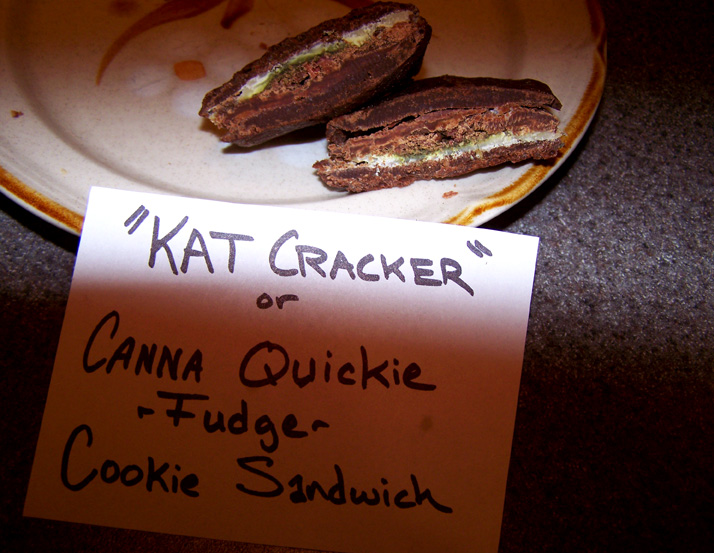 "KAT CRACKER"
or
CANNA Quickie
-Fudge-
Cookie Sandwich